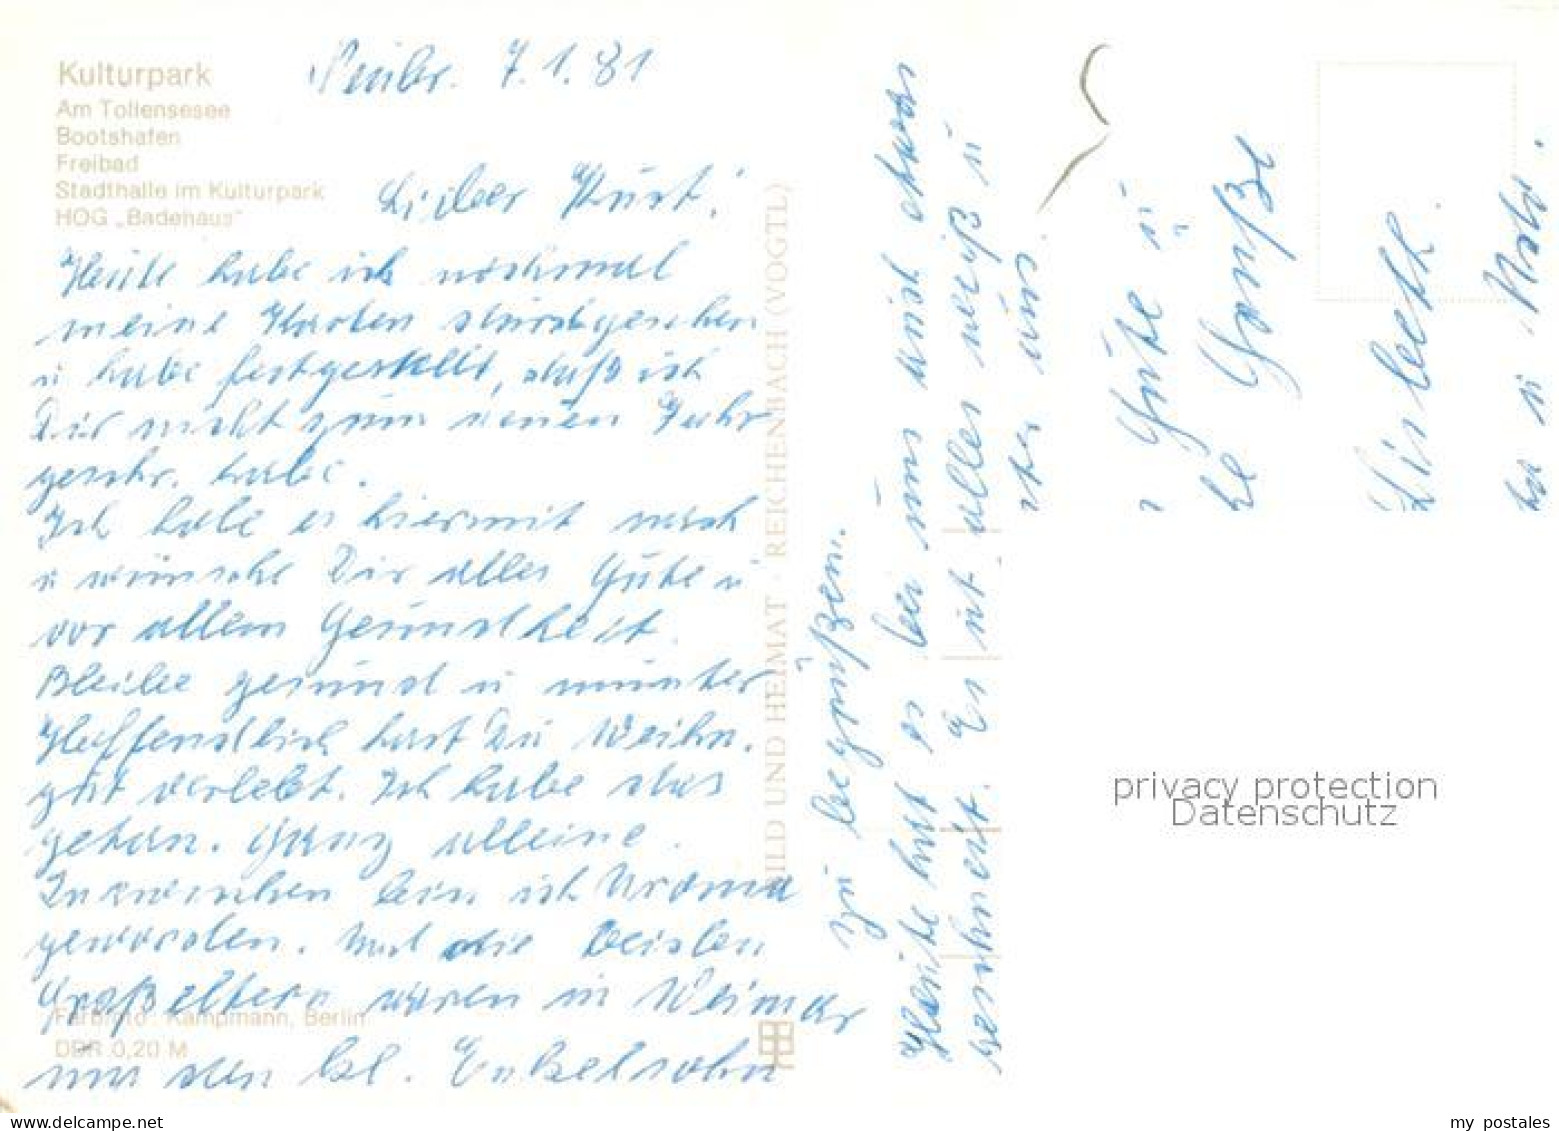 Kulturpark
Am Tollensesee
Bootshafen
Freibad
Stadthalle im Kulturpark
HOG „Badehaus“
Neubr. 7.1.81
Lieber Kurt!
Heute habe ich nochmal
meine Karten durchgesehen
u habe festgestellt, daß ich
Dir nicht zum neuen Jahr
geschr. habe.
Ich hole es hiermit nach
u wünsche Dir alles Gute u
vor allem Gesundheit.
Bleibe gesund u munter
Hoffendlich hast Du Weihn.
gut verlebt. Ich habe das
getan. Ganz alleine.
Inzwischen bin ich Uroma
geworden. Und die beiden
Großeltern waren in Weimar
um den kl. Enkelsohn
zu begrüßen.
Heute hat es bei uns mal etwas
geschneit. Es ist alles weiß u
uns.
Gute u
Grüße
Lisbeth.
u
BILD UND HEIMAT · REICHENBACH (VOGTL)
Farbfoto: Kampmann, Berlin
DDR 0,20 M
privacy protection
Datenschutz
www.delcampe.net
my_postales